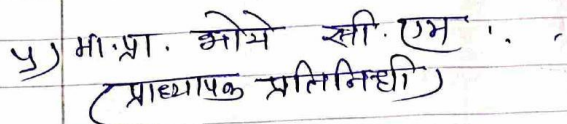 ५) मा.प्रा. भोये सी.एम.
(प्राध्यापक प्रतिनिधी)